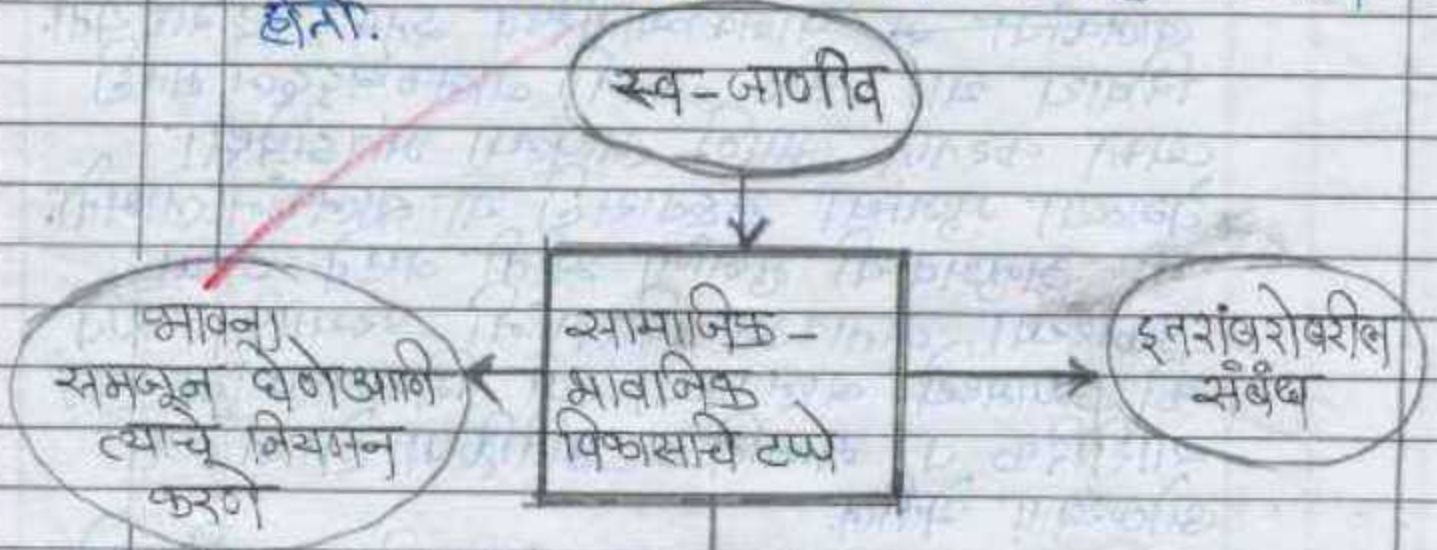 होतो.
स्व-जाणीव
भावना
समजून घेणे आणि
त्याचे नियमन
करणे
सामाजिक-
भावनिक
विकासाचे टप्पे
इतरांबरोबरील
संबंध